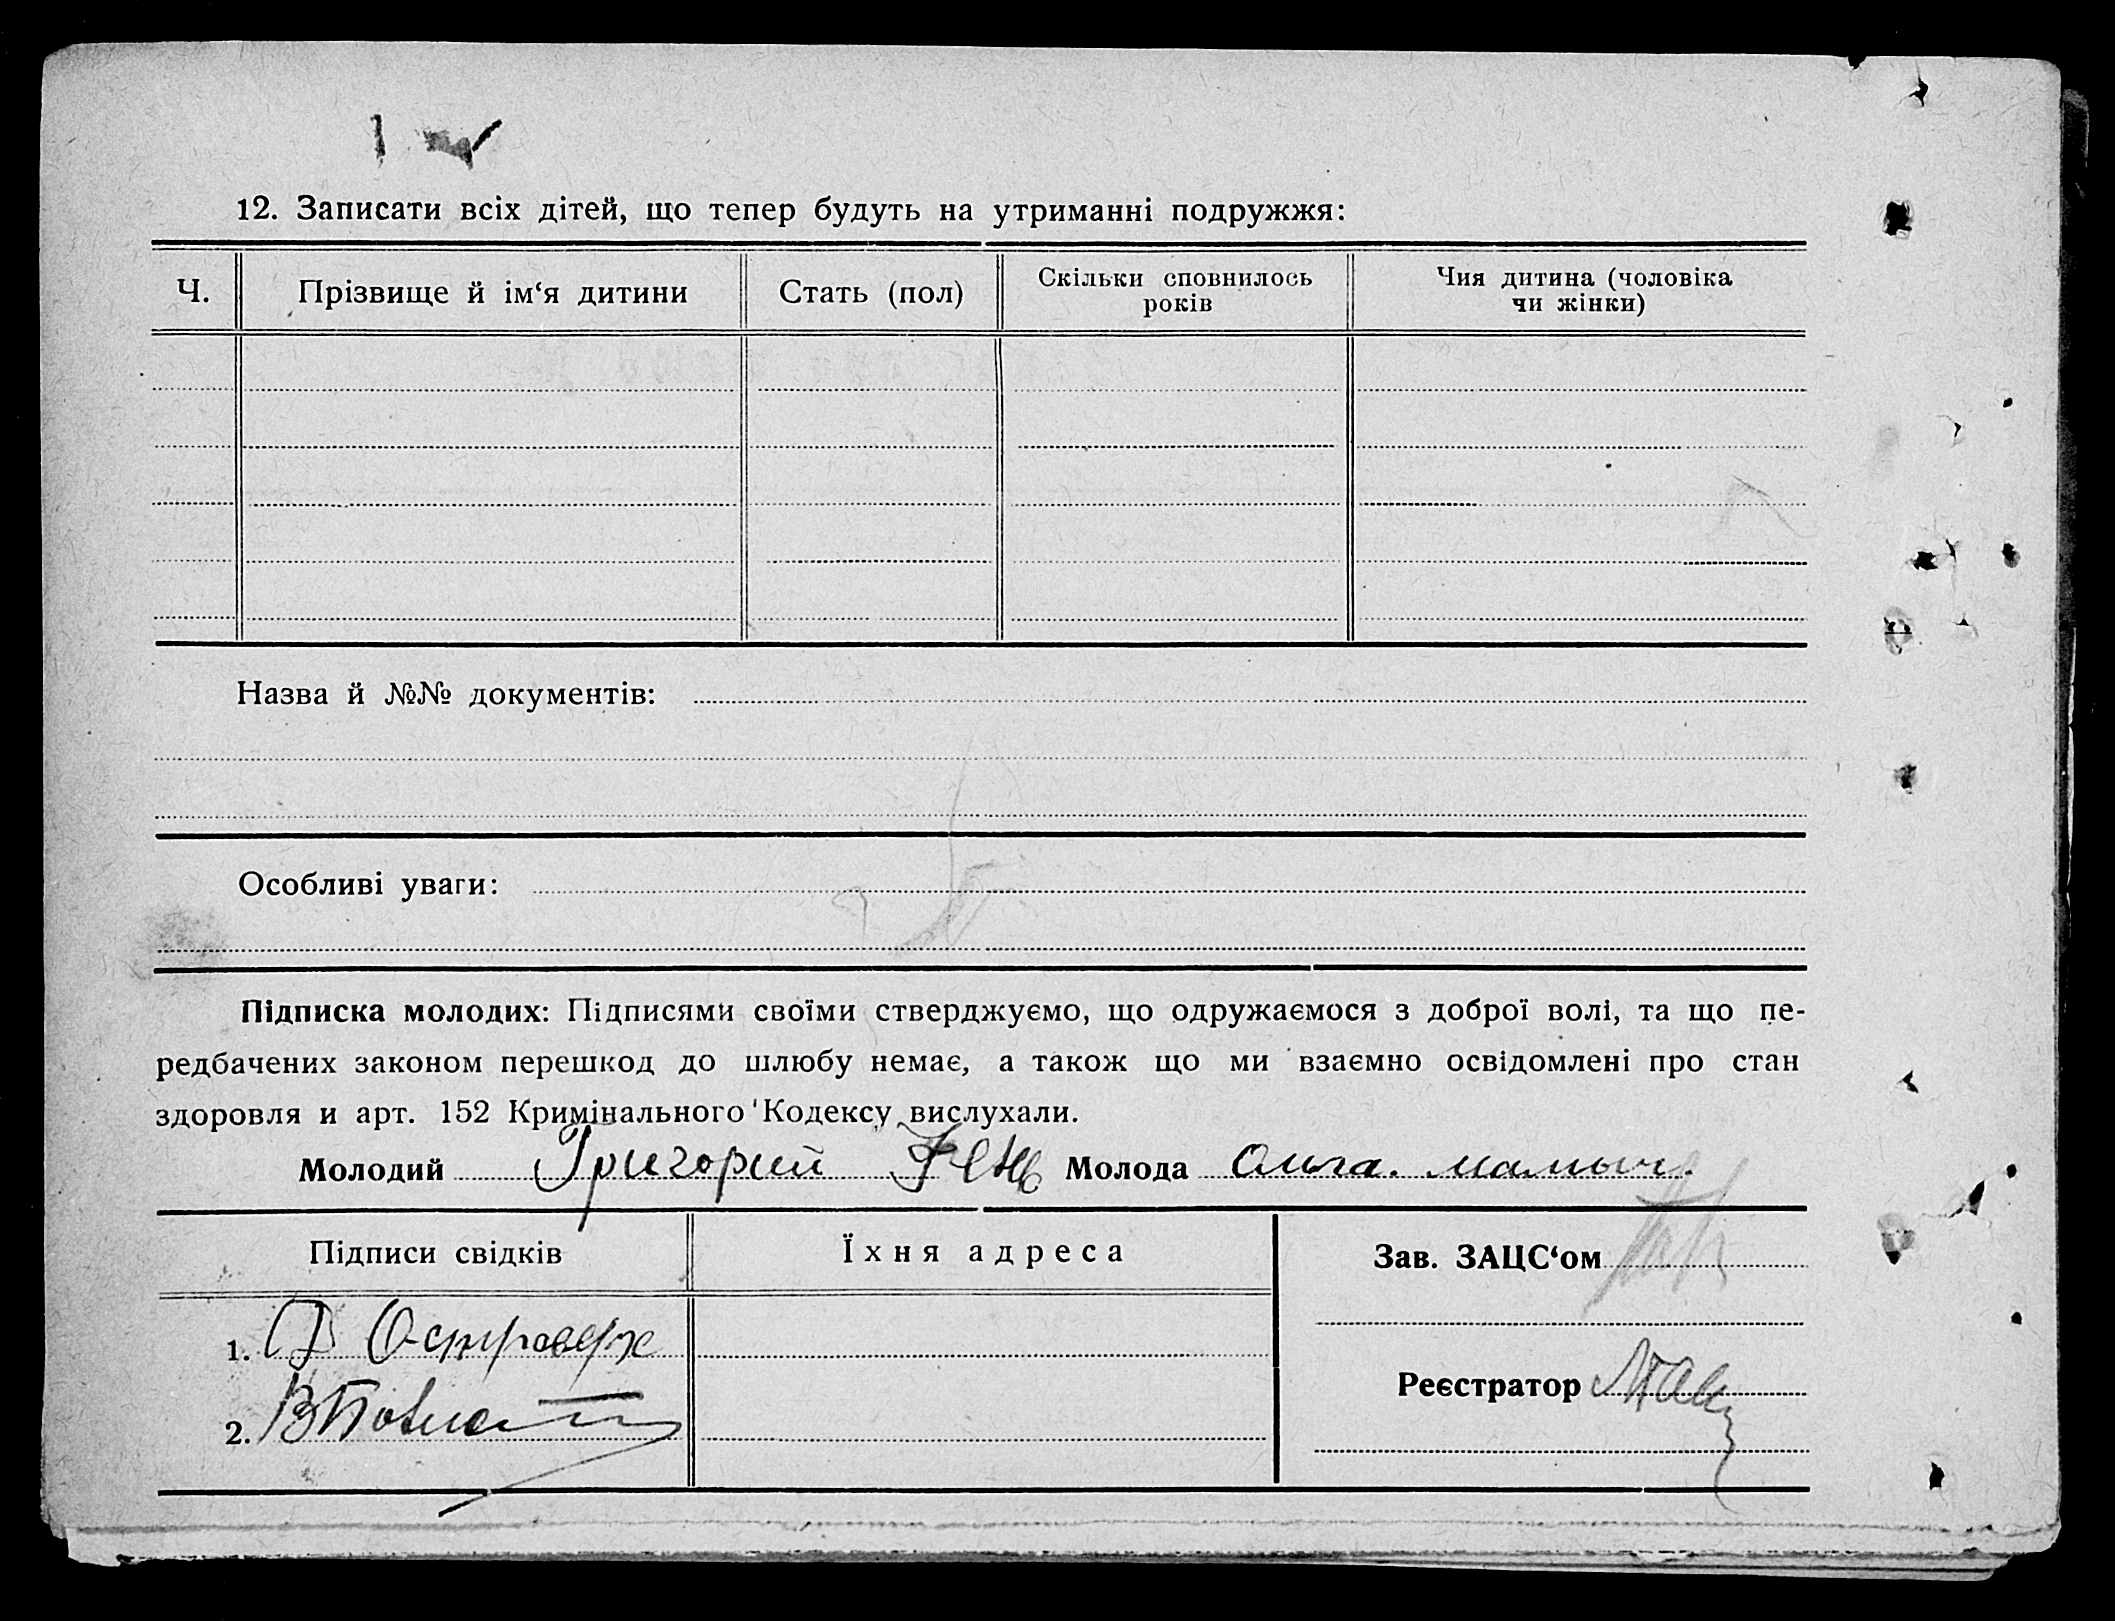 12. Записати всіх дітей, що тепер будуть на утриманні подружжя:
Ч. Прізвище й ім‘я дитини Стать (пол) Скільки сповнилось років Чия дитина (чоловіка чи жінки)
Назва й №№ документів:
Особливі уваги:
Підписка молодих: Підписями своїми стверджуємо, що одружаємося з доброї волі, та що пе-
редбачених законом перешкод до шлюбу немає, а також що ми взаємно освідомлені про стан
здоровля и арт. 152 Кримінального Кодексу вислухали.
Молодий Григорий Молода Ольга.
Підписи свідків Їхня адреса Зав. ЗАЦС‘ом
1. Островерх
Реєстратор
2.